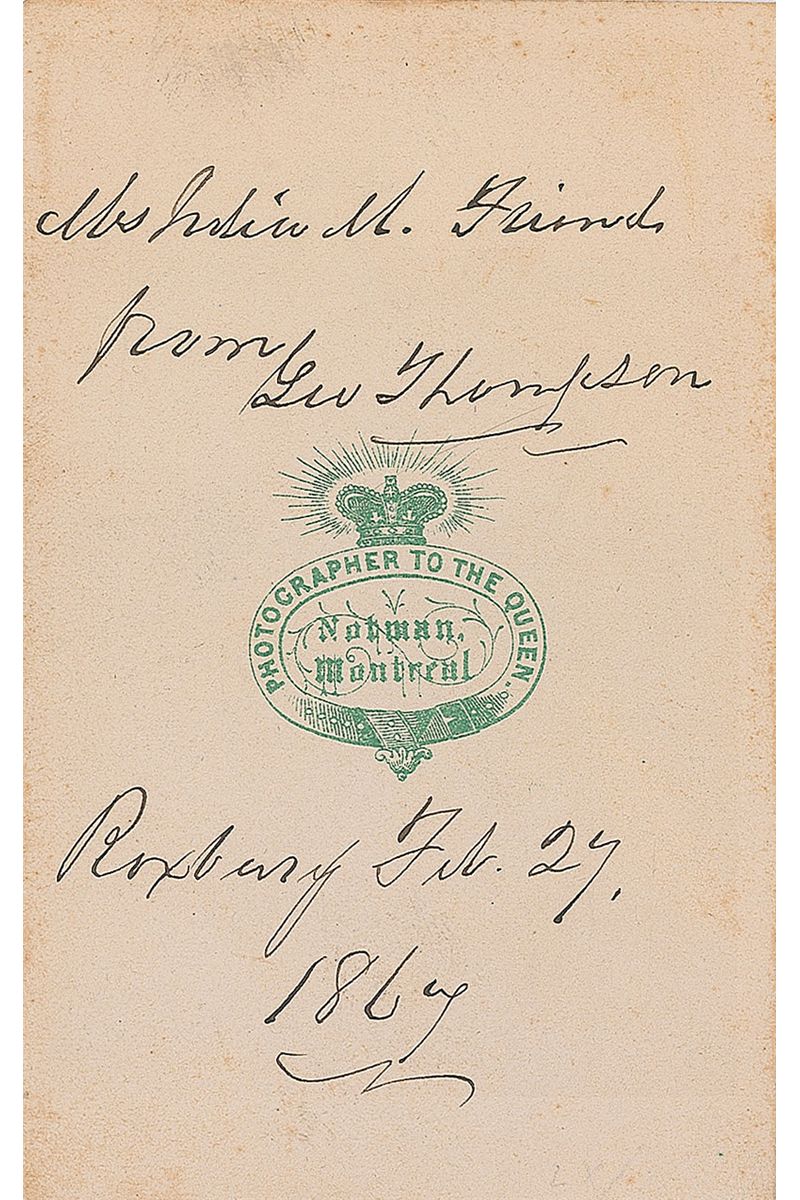 Mrs Julia M. Friend
from
Geo Thompson
PHOTOGRAPHER TO THE QUEEN.
Notman,
Montreal
Roxbury Feb. 27.
1867